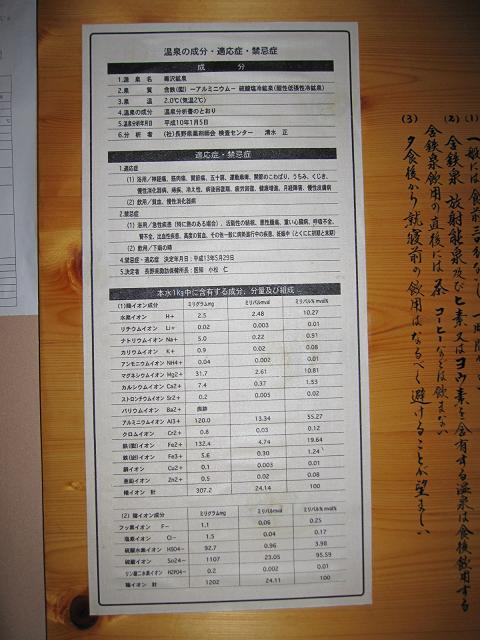 温泉の成分・適応症・禁忌症
成分
1.源泉名 毒沢鉱泉
2.泉質 含鉄(Ⅱ)－アルミニウム－硫酸塩冷鉱泉(酸性低張性冷鉱泉)
3.泉温 2.0℃(気温2℃)
4.温泉の成分 温泉分析書のとおり
5.温泉分析年月日 平成10年1月5日
6.分析者 (社)長野県薬剤師会 検査センター 清水 正
適応症・禁忌症
1.適応症
(1) 浴用/神経痛、筋肉痛、関節痛、五十肩、運動麻痺、関節のこわばり、うちみ、くじき、
慢性消化器病、痔疾、冷え性、病後回復期、疲労回復、健康増進、月経障害、慢性皮膚病
(2) 飲用/貧血、慢性消化器病
2.禁忌症
(1) 浴用/急性疾患(特に熱のある場合)、活動性の結核、悪性腫瘍、重い心臓病、呼吸不全、
腎不全、出血性疾患、高度の貧血、その他一般に病勢進行中の疾患、妊娠中(とくに初期と末期)
(2) 飲用/下痢の時
4.禁忌症・適応症 決定年月日:平成13年5月29日
5.決定者 長野県諏訪保健所長:医師 小松 仁
本水1kg中に含有する成分、分量及び組成
(1)陽イオン成分 ミリグラムmg ミリバルmval ミリバル% mval%
水素イオン H+ 2.5 2.48 10.27
リチウムイオン Li+ 0.02 0.003 0.01
ナトリウムイオン Na+ 5.0 0.22 0.91
カリウムイオン K+ 0.9 0.02 0.08
アンモニウムイオン NH4+ 0.04 0.002 0.01
マグネシウムイオン Mg2+ 31.7 2.61 10.81
カルシウムイオン Ca2+ 7.4 0.37 1.53
ストロンチウムイオン Sr2+ 0.2 0.005 0.02
バリウムイオン Ba2+ 痕跡
アルミニウムイオン Al3+ 120.0 13.34 55.27
クロムイオン Cr2+ 0.8 0.03 0.12
鉄(Ⅱ)イオン Fe2+ 132.4 4.74 19.64
鉄(Ⅲ)イオン Fe3+ 5.6 0.30 1.24
銅イオン Cu2+ 0.1 0.003 0.01
亜鉛イオン Zn2+ 0.5 0.02 0.08
陽イオン 計 307.2 24.14 100
(2) 陰イオン成分 ミリグラムmg ミリバルmval ミリバル% mval%
フッ素イオン F- 1.1 0.06 0.25
塩素イオン Cl- 1.5 0.04 0.17
硫酸水素イオン HSO4- 92.7 0.96 3.98
硫酸イオン So24- 1107 23.05 95.59
リン酸二水素イオン H2PO4- 0.2 0.002 0.01
陰イオン 計 1202 24.11 100
(1)
(2) 含鉄泉 放射能泉及びヒ素又はヨウ素を含有する温泉は食後飲用する
含鉄泉飲用の直後には茶 コーヒーなどは飲まない
(3) 夕食後から就寝前の飲用はなるべく避けることが望ましい